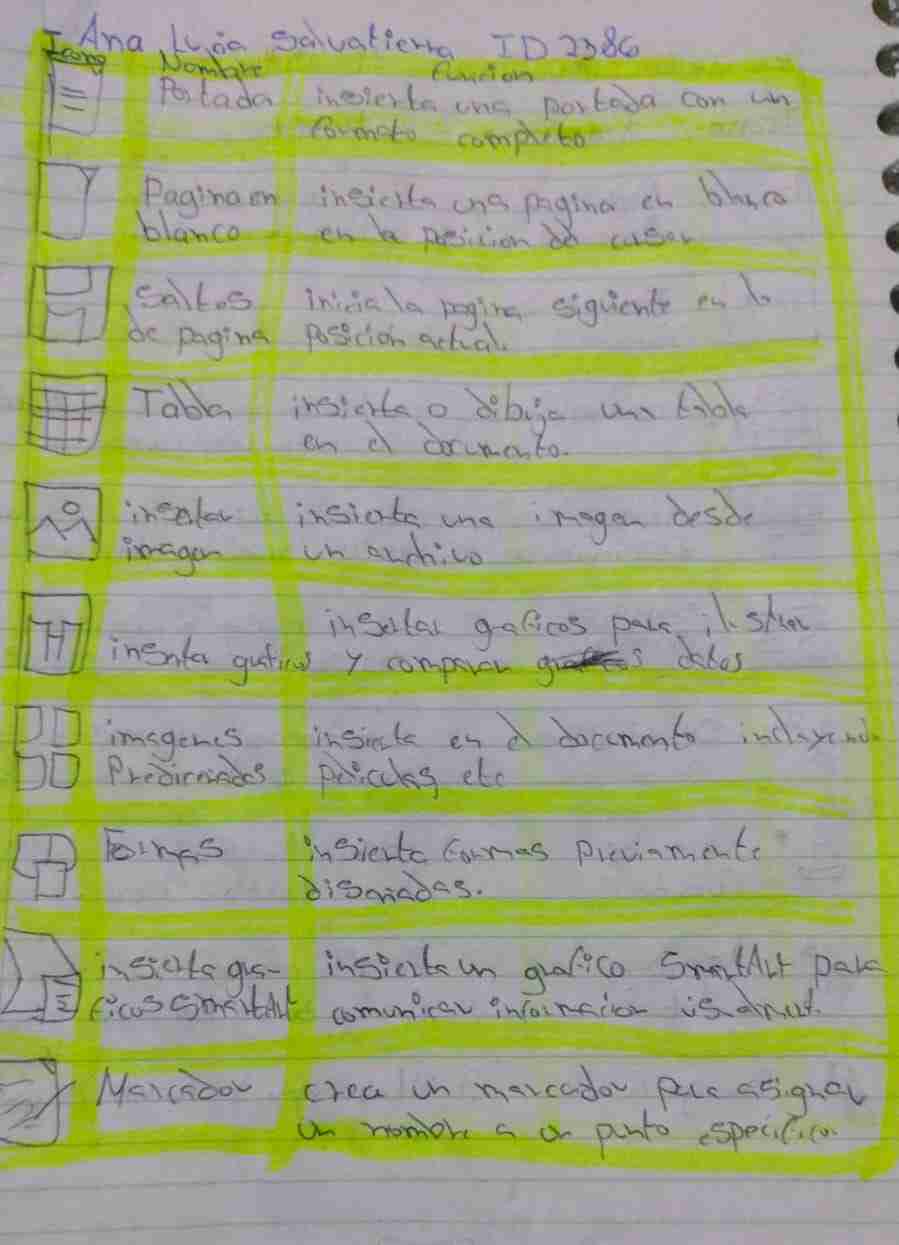 Ana Lucia Salvatierra ID 2386
Icono Nombre funcion
Portada insierta una portada con un
formato completo
Pagina en insierta una pagina en blanco
blanco en la posicion de cusor
Saltos inicia la pagina siguiente en la
de pagina posición actual.
Tabla insierta o dibija una tabla
en el documento.
insertar insierta una imagen desde
imagen un archivo
insertar graficos para ilustrar
inserta graficos y comparar datos
imagenes insierta en el documento incluyendo
Predicenados peliculas etc
Formas insierta formas previamente
diseñadas.
insierta gra- insierta un grafico SmartArt para
ficos SmartArt comunicar informacion
Marcador crea un marcador para asignar
un nombre a un punto especifico.